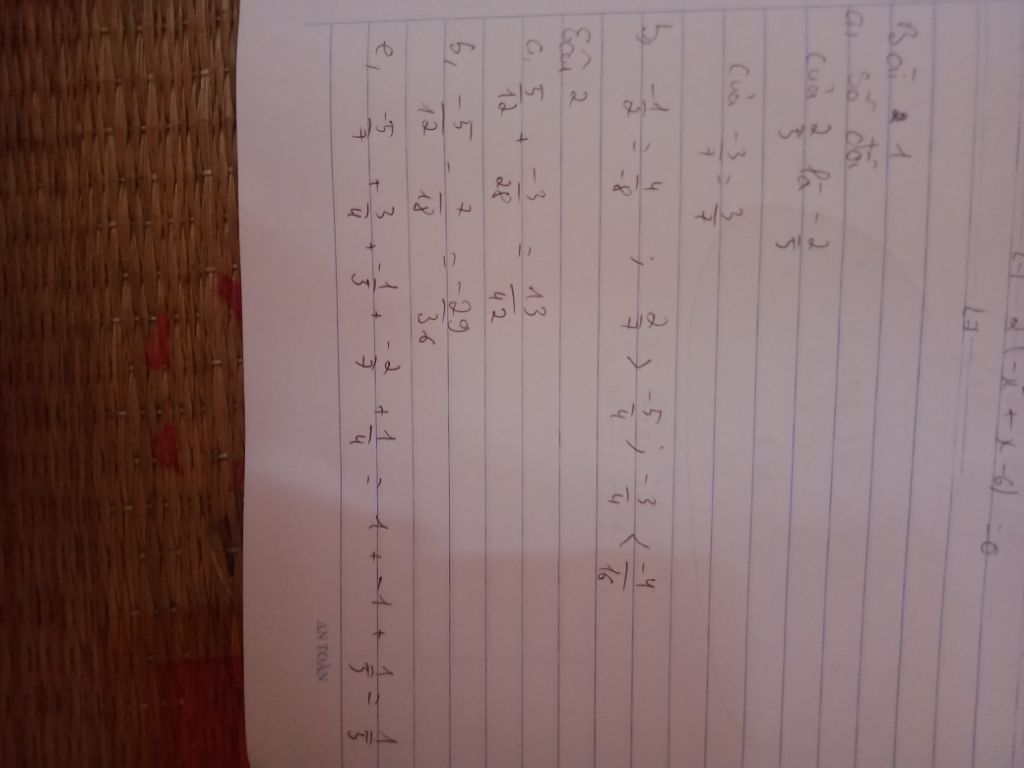 L7 2(-x² + x - 6) = 0
L7
Bài 1
a, Số đối
của 2/5 là -2/5
của -3/7 = 3/7
b, -1/2 = 4/-8 ; 2/7 > -5/4 ; -3/4 < -4/16
Câu 2
a, 5/12 + -3/28 = 13/42
b, -5/12 - 7/18 = -29/36
c, -5/7 + 3/4 + -1/5 + -2/7 + 1/4 = 1 + -1 + 1/5 = 1/5
AN TOÀN